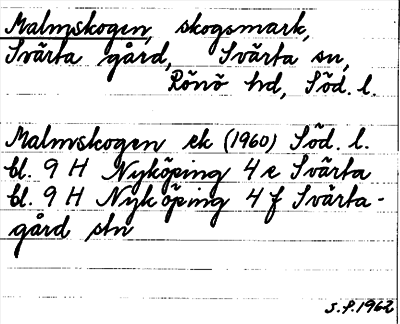 Malmskogen, skogsmark,
Svärta gård, Svärta sn,
Rönö hd, Söd. l.
Malmskogen ek (1960) Söd. l.
bl. 9 H Nyköping 4 e Svärta
bl. 9 H Nyköping 4 f Svärta-
gård stn
S.P. 1962